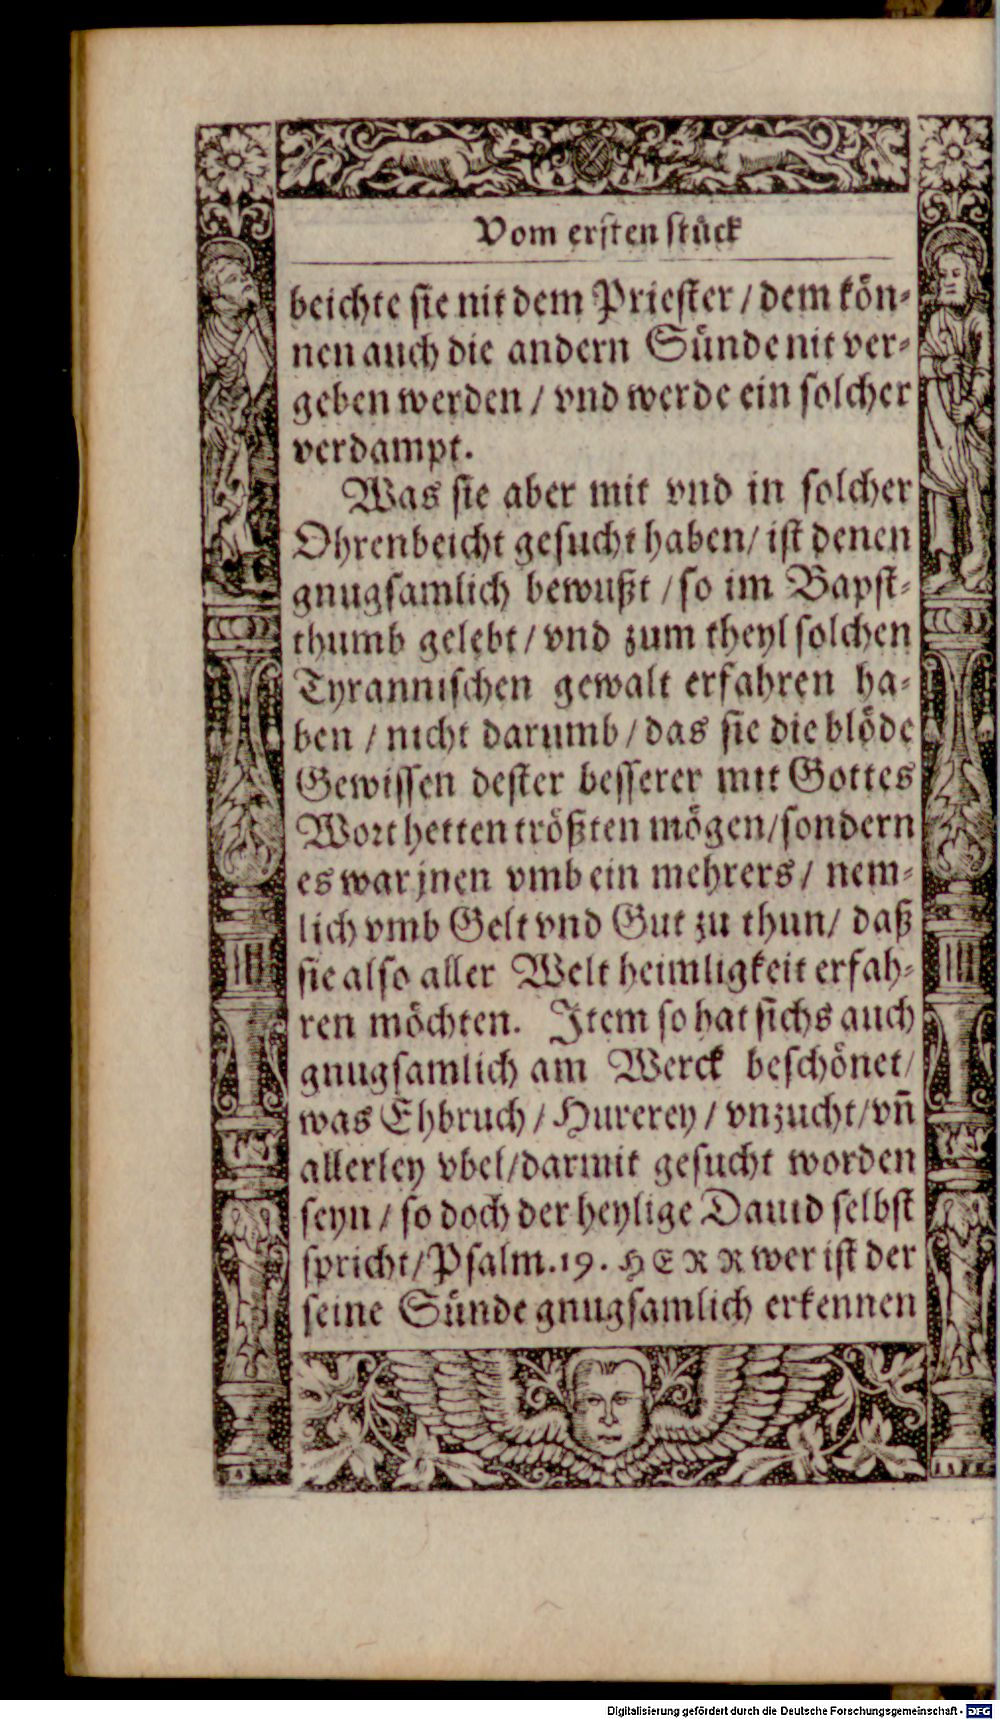 Vom ersten stück
beichte sie nit dem Priester / dem kön-
nen auch die andern Sünde nit ver-
geben werden / vnd werde ein solcher
verdampt.
Was sie aber mit vnd in solcher
Ohrenbeicht gesucht haben / ist denen
gnugsamlich bewußt / so im Bapst-
thumb gelebt / vnd zum theyl solchen
Tyrannischen gewalt erfahren ha-
ben / nicht darumb / das sie die blöde
Gewissen dester besserer mit Gottes
Wort hetten trößten mögen / sondern
es war jnen vmb ein mehrers / nem-
lich vmb Gelt vnd Gut zu thun / daß
sie also aller Welt heimligkeit erfah-
ren möchten. Item so hat sichs auch
gnugsamlich am Werck beschönet /
was Ehbruch / Hurerey / vnzucht / vñ
allerley vbel / darmit gesucht worden
seyn / so doch der heylige Dauid selbst
spricht / Psalm. 19. HERR wer ist der
seine Sünde gnugsamlich erkennen
Digitalisierung gefördert durch die Deutsche Forschungsgemeinschaft - DFG